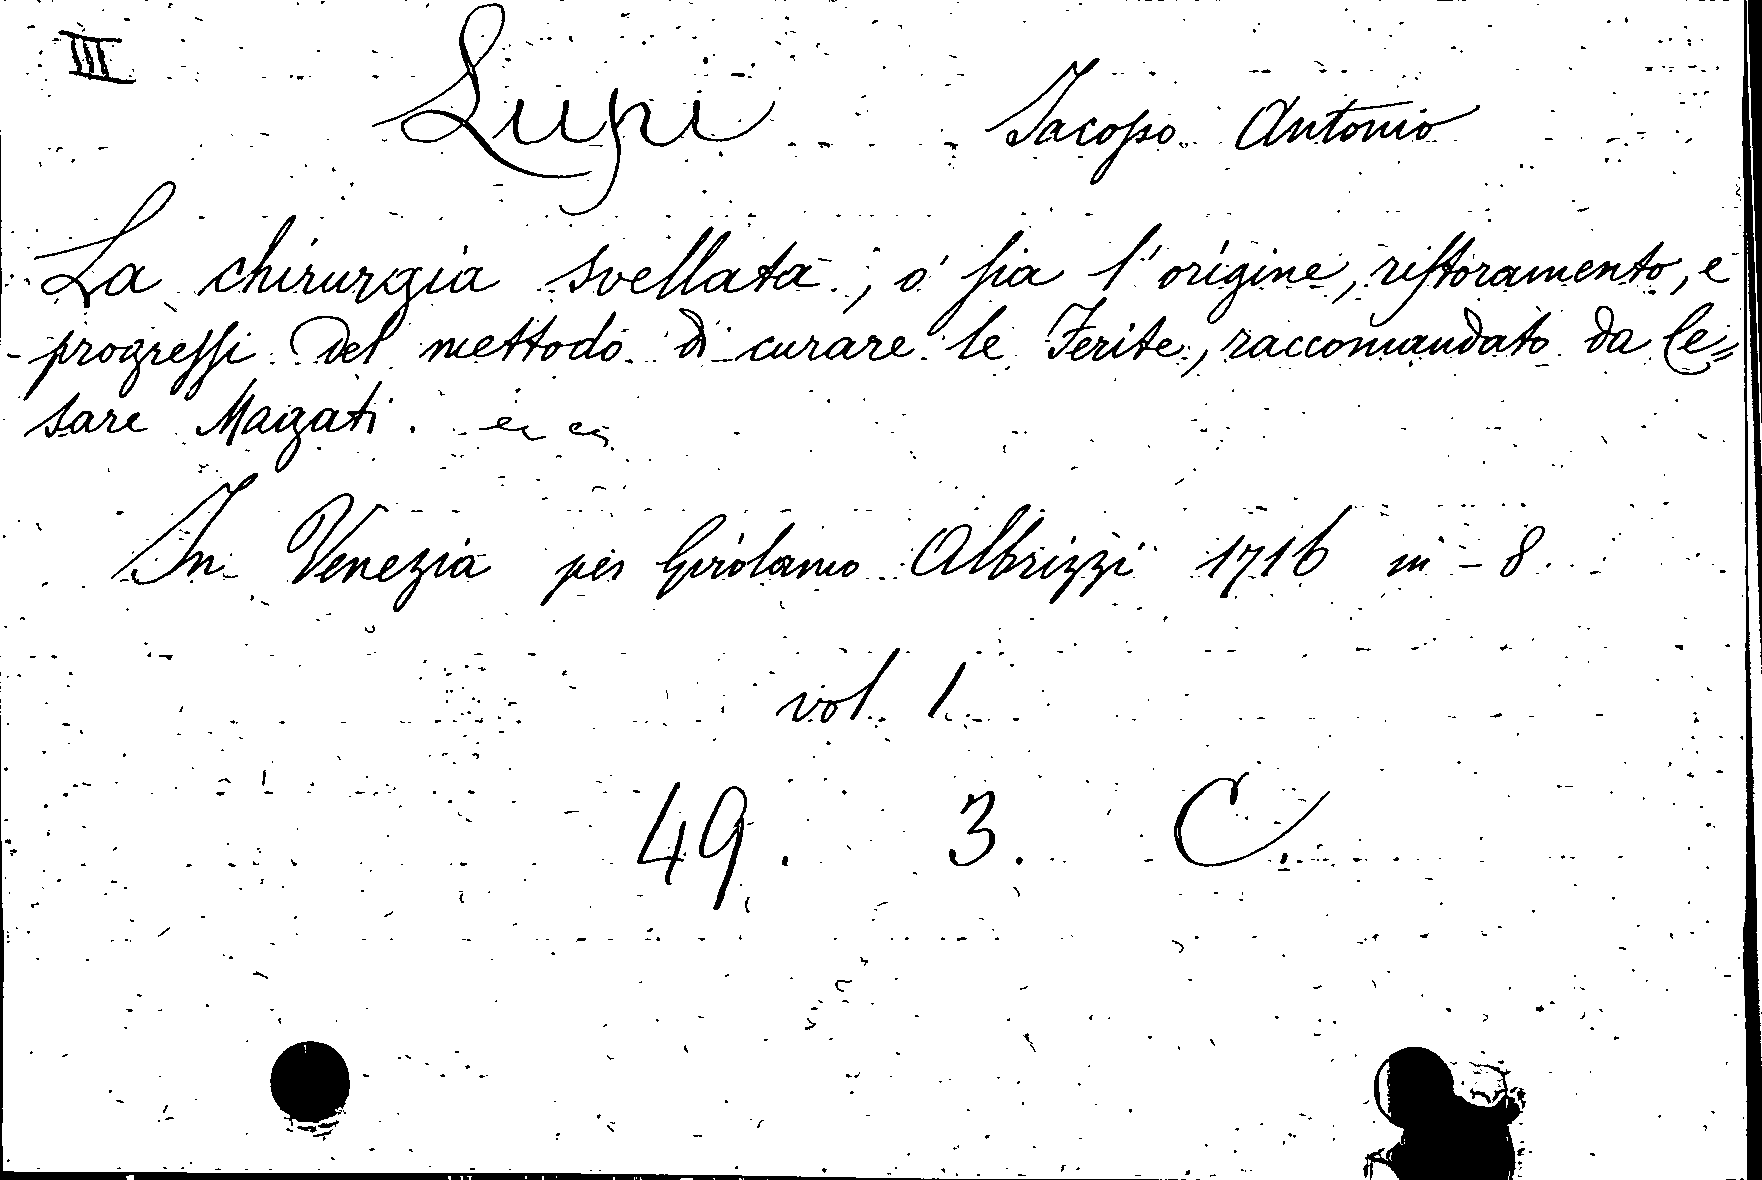 III
Lupi Jacopo Antonio
La chirurgia svellata, ó sia l'origine, ristoramento, e
progressi del mettodo di curare le Ferite, raccomandato da Ce=
sare Magati.
In Venezia per Girolamo Albrizzi 1716 in-8.
vol. 1.
49. 3. C.